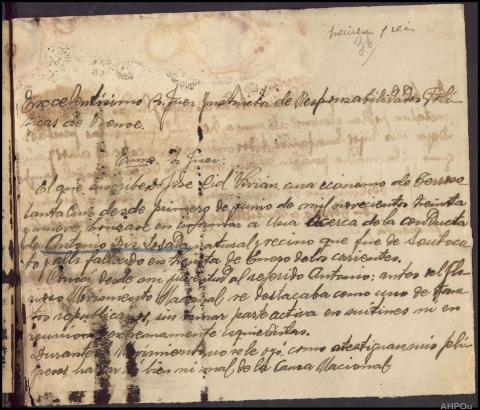 treinta y seis
36
Excelentísimo Sr. Juez Instructor de Responsabilidades Polí-
ticas de Orense.
Excmo. Sr. Juez:
El que suscribe José Cid cura ecónomo de
Santa Cruz desde primero de junio de mil novecientos treinta
y nueve, hónrase en informar a Usía acerca de la conducta
de Antonio Losada natural y vecino que fue de
y allí fallecido en treinta de Enero de los corrientes.
Conocí desde mi juventud al referido Antonio: antes del glo-
rioso Movimiento Nacional se destacaba como uno de
republicanos, sin tomar parte activa en mítines ni en
reuniones extremamente izquierdistas.
Durante el Movimiento no se le oyó como atestiguan mis feli-
greses hablar ni bien ni mal de la Causa Nacional,
AHPOu